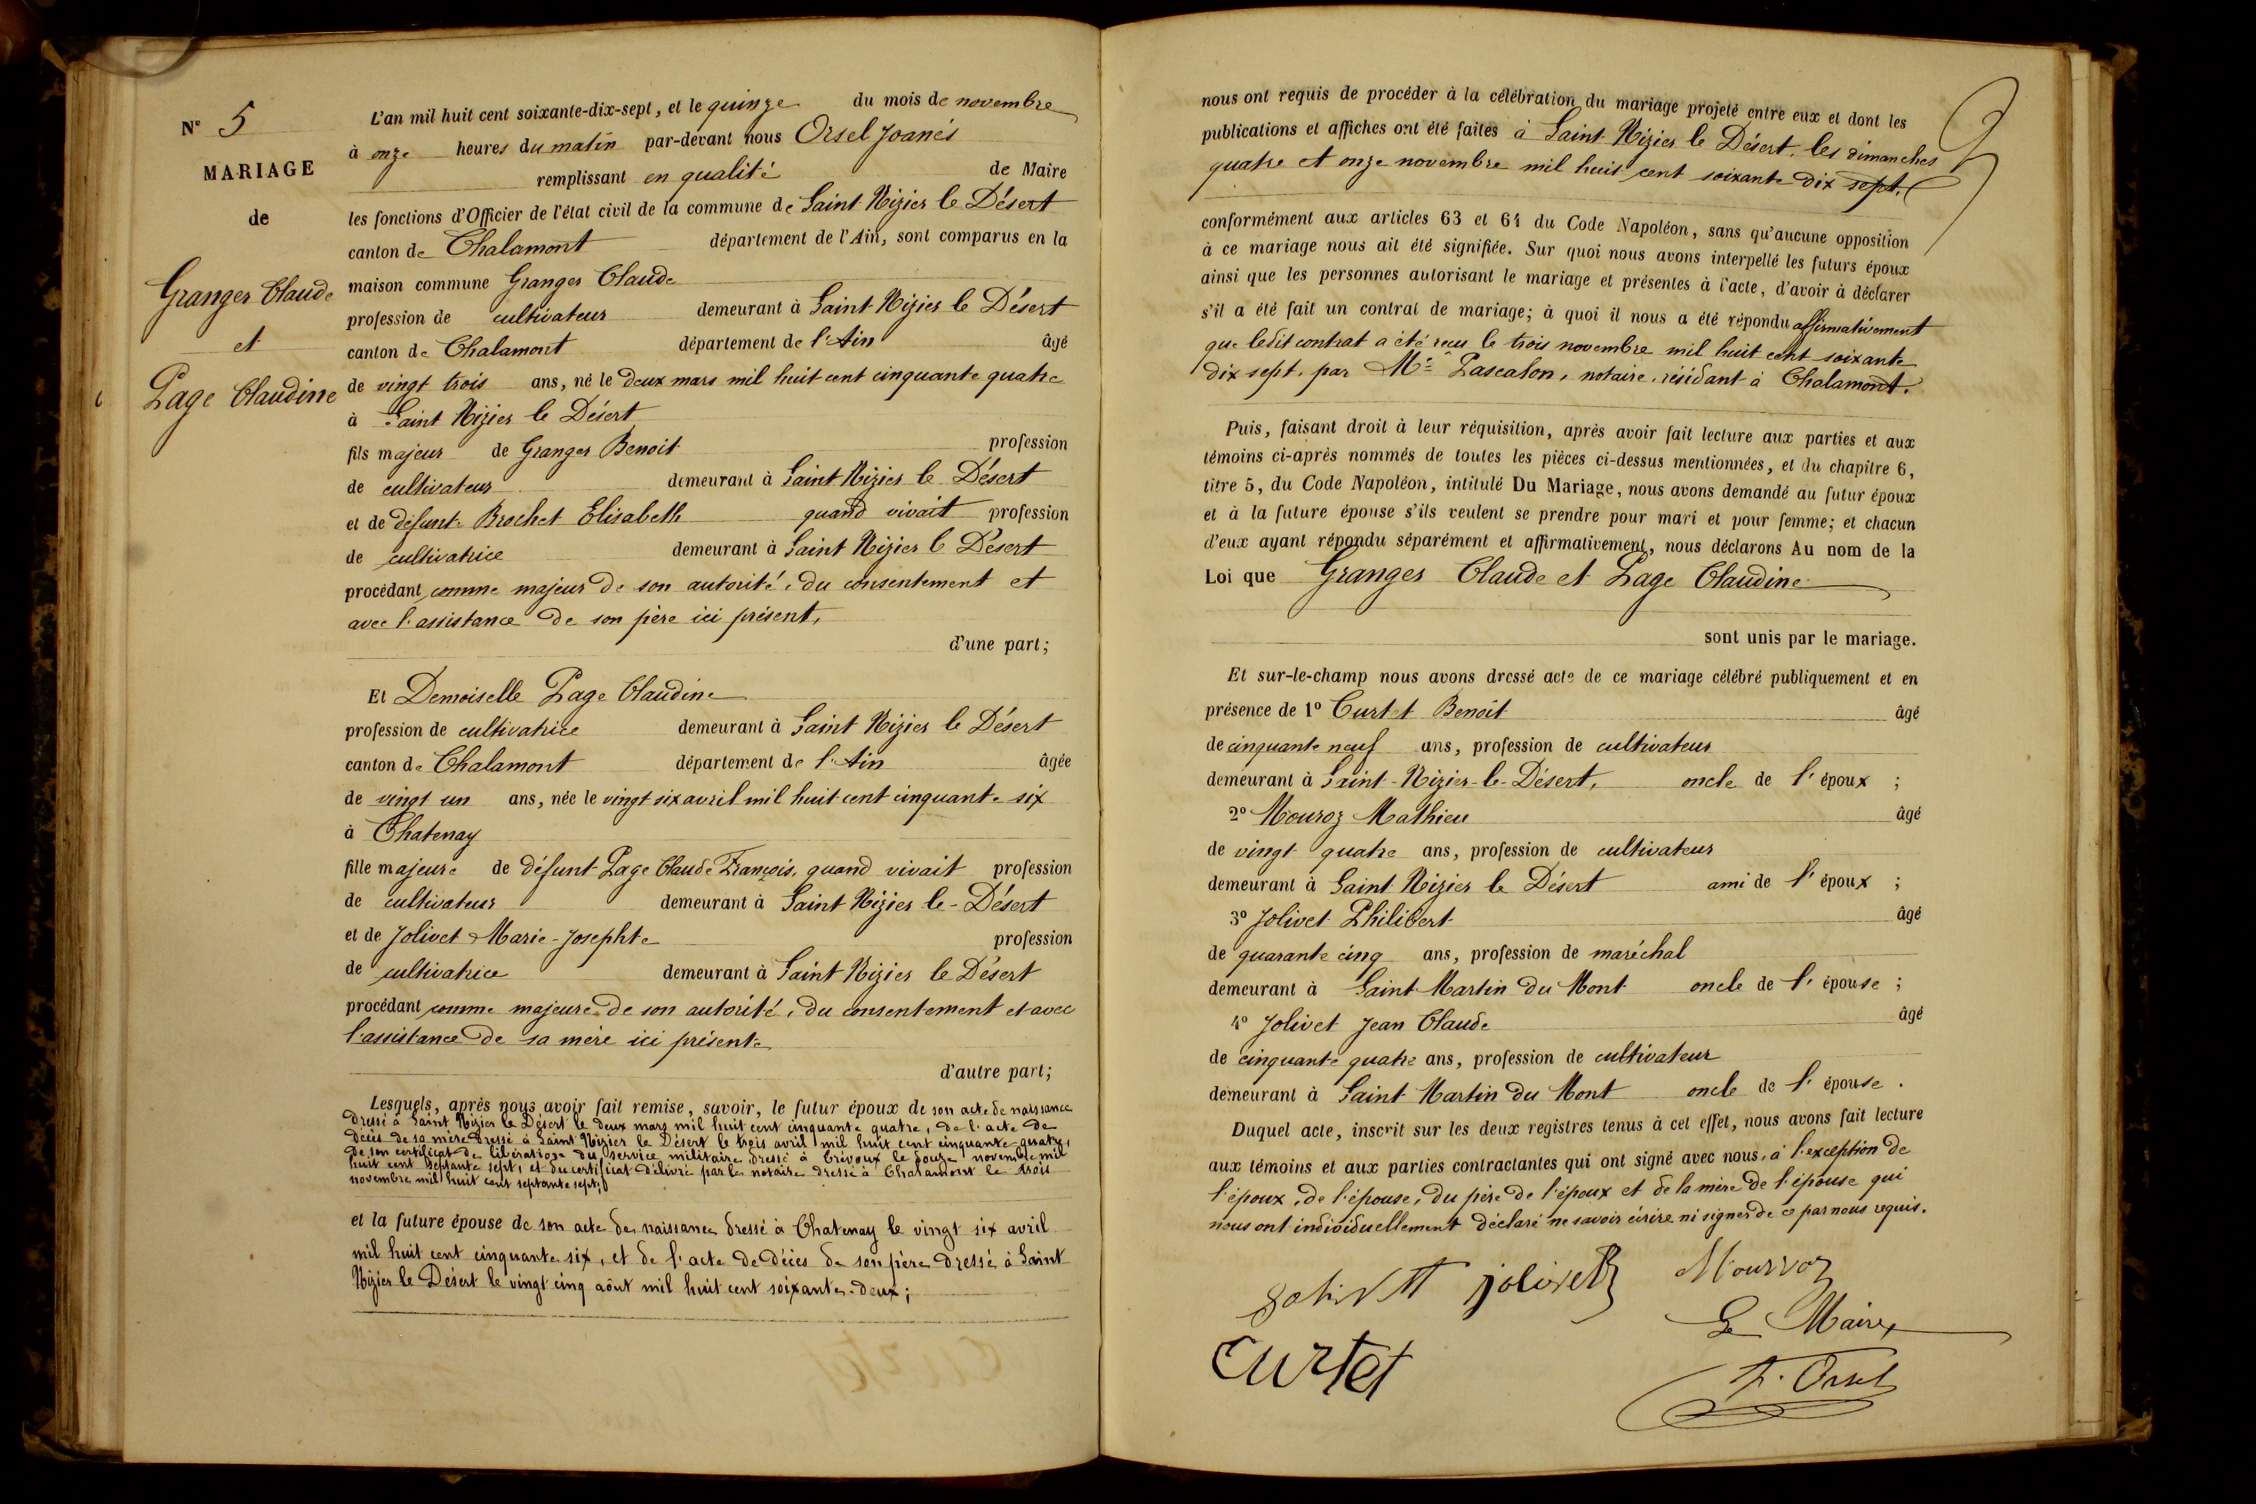 N° 5
MARIAGE
de
Granger Claude
et
Page Claudine
L'an mil huit cent soixante-dix-sept, et le quinze du mois de novembre
à onze heures du matin par-devant nous Orsel Joanés
remplissant en qualité de Maire
les fonctions d'Officier de l'état civil de la commune de Saint Nizier le Désert
canton de Chalamont département de l'Ain, sont comparus en la
maison commune Granger Claude
profession de cultivateur demeurant à Saint Nizier le Désert
canton de Chalamont département de l'Ain âgé
de vingt trois ans, né le deux mars mil huit cent cinquante quatre
à Saint Nizier le Désert
fils majeur de Granger Benoit profession
de cultivateur demeurant à Saint Nizier le Désert
et de défunte Brochet Elisabeth quand vivait profession
de cultivatrice demeurant à Saint Nizier le Désert
procédant comme majeur de son autorité, du consentement et
avec l'assistance de son père ici présent,
d'une part;
Et Demoiselle Page Claudine
profession de cultivatrice demeurant à Saint Nizier le Désert
canton de Chalamont département de l'Ain âgée
de vingt un ans, née le vingt six avril mil huit cent cinquante six
à Chatenay
fille majeure de défunt Page Claude François, quand vivait profession
de cultivateur demeurant à Saint Nizier le-Désert
et de Jolivet Marie-Josephte profession
de cultivatrice demeurant à Saint Nizier le Désert
procédant comme majeure de son autorité, du consentement et avec
l'assistance de sa mère ici présente
d'autre part;
Lesquels, après nous avoir fait remise, savoir, le futur époux de son acte de naissance
dressé à Saint Nizier le Désert le deux mars mil huit cent cinquante quatre, de l'acte de
décès de sa mère dressé à Saint Nizier le Désert le trois avril mil huit cent cinquante-quatre,
de son certificat de libération du service militaire dressé à Trévoux le douze novembre mil
huit cent septante sept, et du certificat délivré par le notaire dressé à Chalamont le trois
novembre mil huit cent septante sept;
et la future épouse de son acte de naissance dressé à Chatenay le vingt six avril
mil huit cent cinquante six, et de l'acte de décès de son père dressé à Saint
Nizier le Désert le vingt cinq aôut mil huit cent soixante-deux;
nous ont requis de procéder à la célébration du mariage projeté entre eux et dont les
publications et affiches ont été faites à Saint Nizier le Désert, les dimanches
quatre et onze novembre mil huit cent soixante dix sept.
conformément aux articles 63 et 64 du Code Napoléon, sans qu'aucune opposition
à ce mariage nous ait été signifiée. Sur quoi nous avons interpellé les futurs époux
ainsi que les personnes autorisant le mariage et présentes à l'acte, d'avoir à déclarer
s'il a été fait un contrat de mariage; à quoi il nous a été répondu affirmativement
que ledit contrat a été reçu le trois novembre mil huit cent soixante
dix sept, par Me Pascalon, notaire, résidant à Chalamont.
Puis, faisant droit à leur réquisition, après avoir fait lecture aux parties et aux
témoins ci-après nommés de toutes les pièces ci-dessus mentionnées, et du chapitre 6,
titre 5, du Code Napoléon, intitulé Du Mariage, nous avons demandé au futur époux
et à la future épouse s'ils veulent se prendre pour mari et pour femme; et chacun
d'eux ayant répondu séparément et affirmativement, nous déclarons Au nom de la
Loi que Granger Claude et Page Claudine
sont unis par le mariage.
Et sur-le-champ nous avons dressé acte de ce mariage célébré publiquement et en
présence de 1° Curtet Benoit âgé
de cinquante neuf ans, profession de cultivateur
demeurant à Saint-Nizier-le-Désert, oncle de l'époux ;
2° Mouroz Mathieu âgé
de vingt quatre ans, profession de cultivateur
demeurant à Saint Nizier le Désert ami de l'époux ;
3° Jolivet Philibert âgé
de quarante cinq ans, profession de maréchal
demeurant à Saint Martin du Mont oncle de l'épouse ;
4° Jolivet Jean Claude âgé
de cinquante quatre ans, profession de cultivateur
demeurant à Saint Martin du Mont oncle de l'épouse .
Duquel acte, inscrit sur les deux registres tenus à cet effet, nous avons fait lecture
aux témoins et aux parties contractantes qui ont signé avec nous, à l'exception de
l'époux, de l'épouse, du père de l'époux et de la mère de l'épouse qui
nous ont individuellement déclaré ne savoir écrire ni signer de ce par nous requis.
jolivet Mourroz
Le Maire,
Curtet
J. Orsel